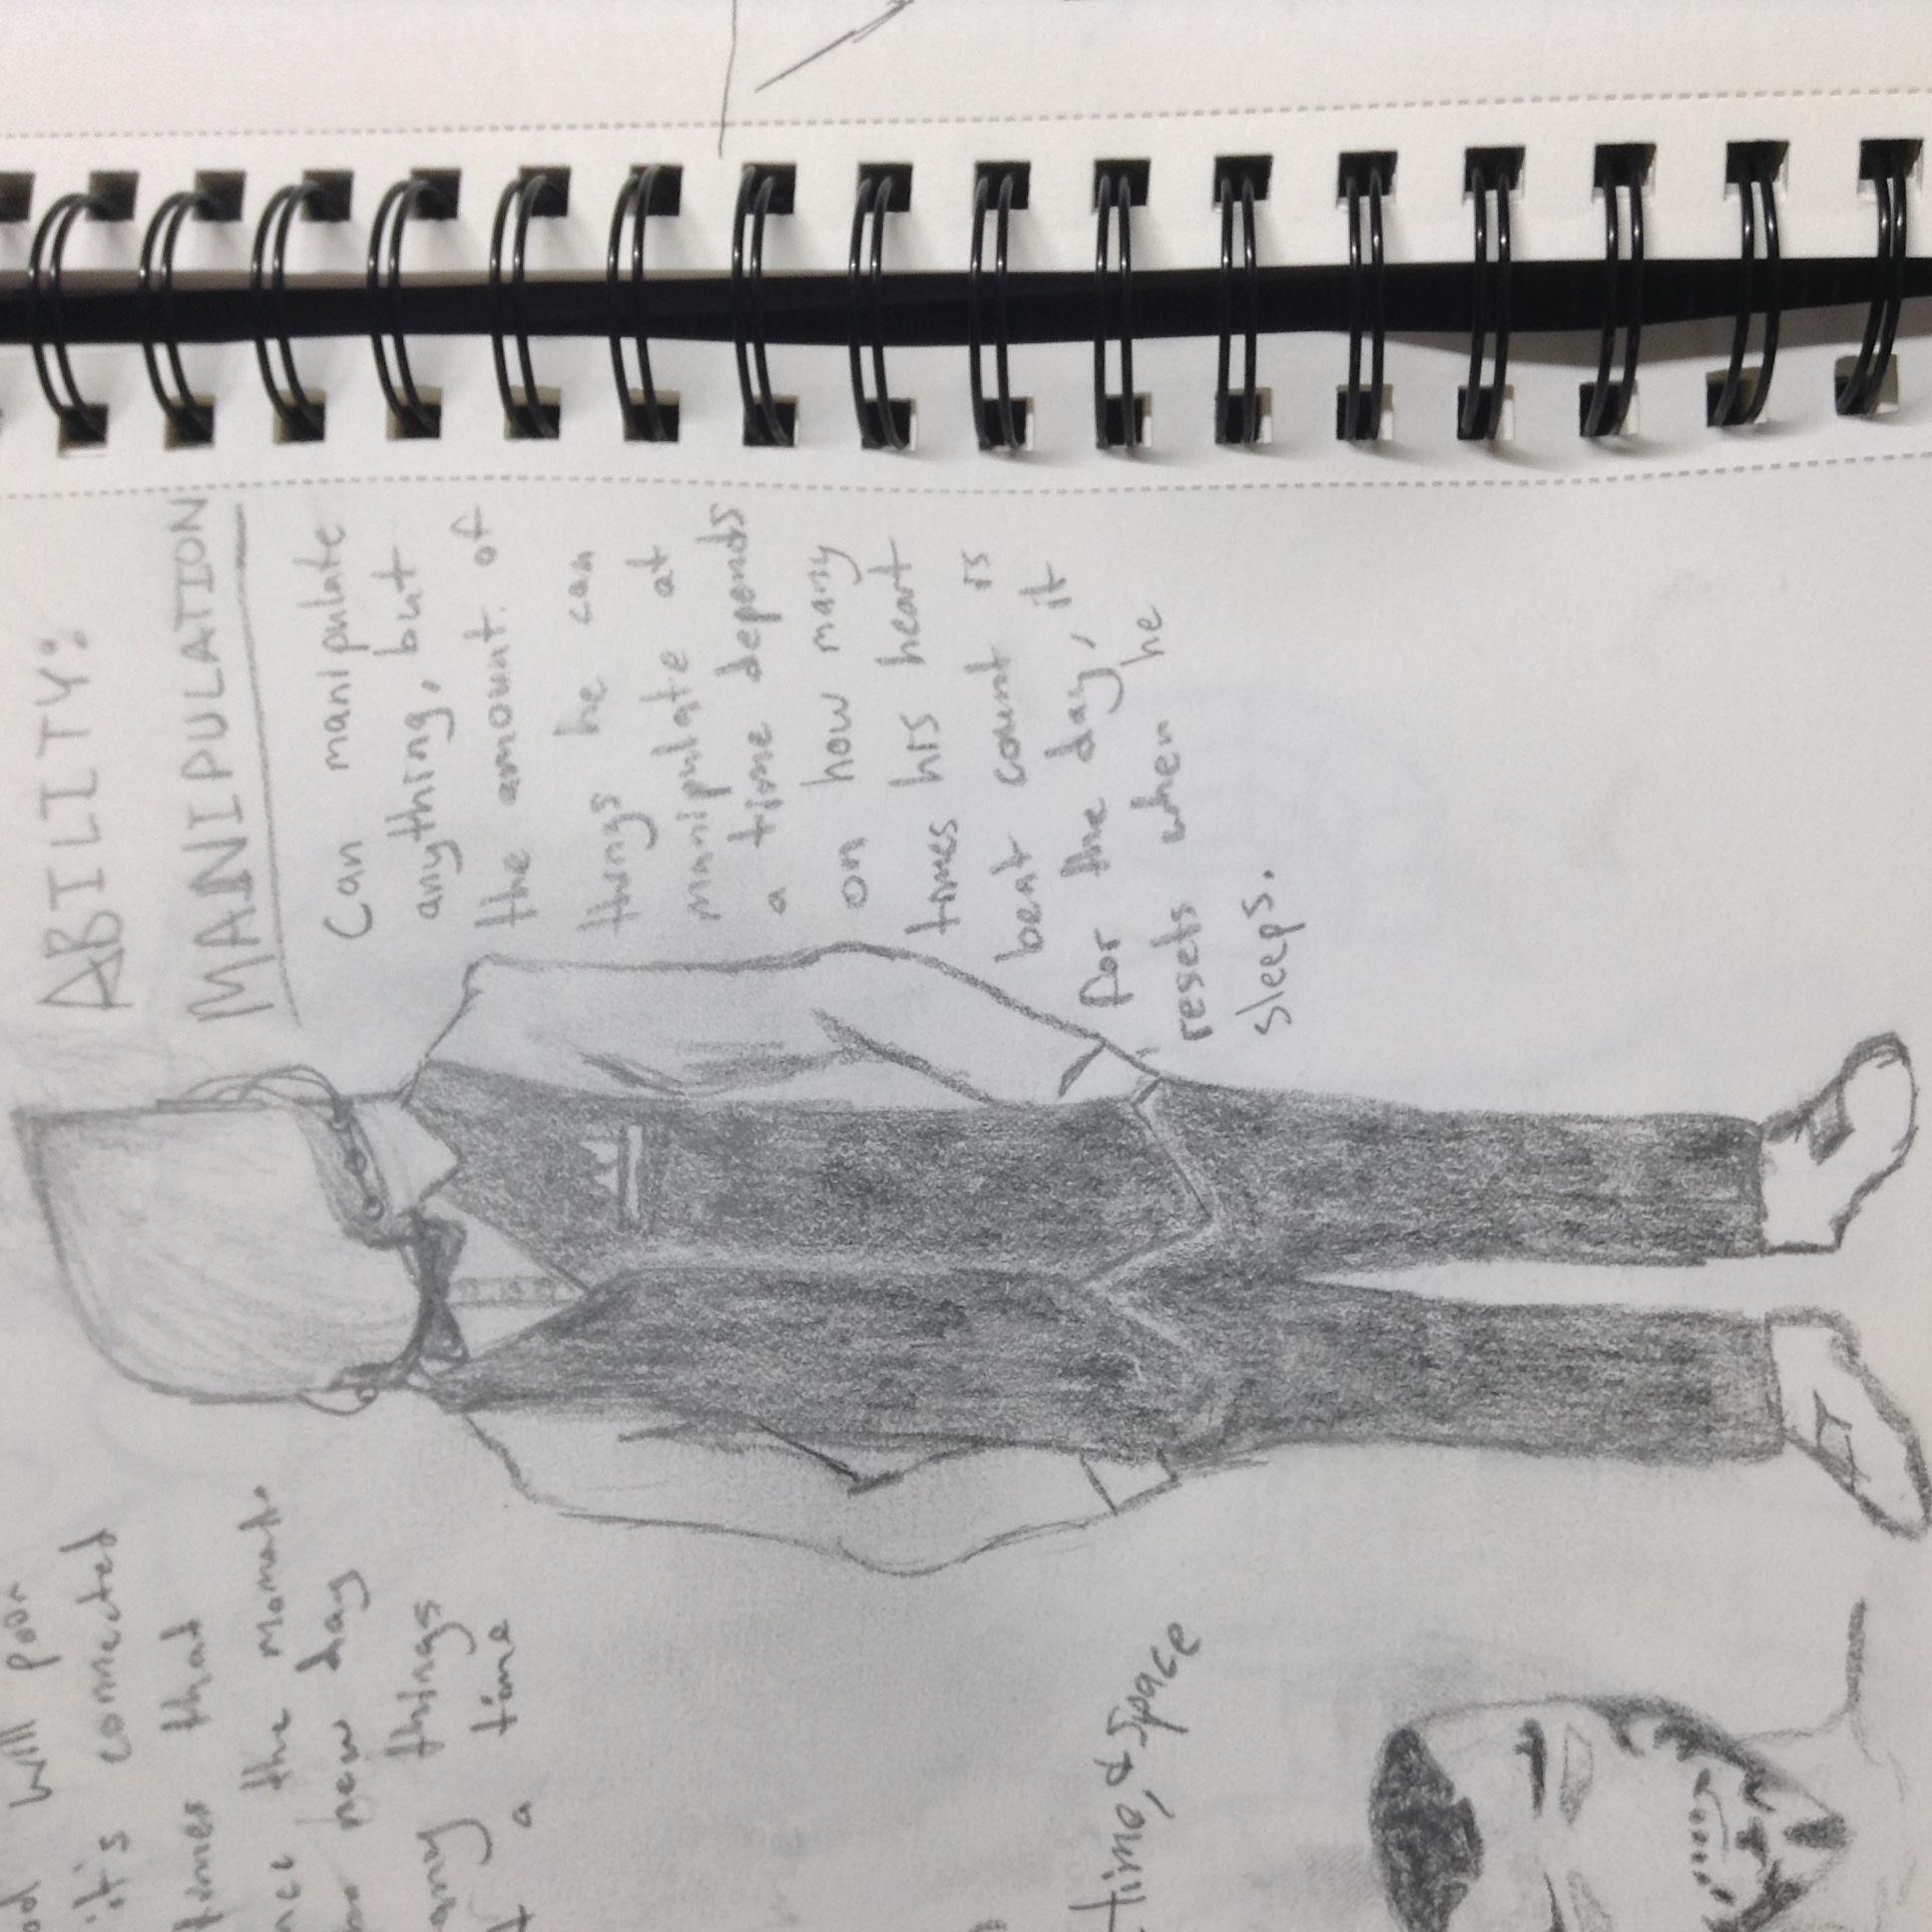 will poor
it's connected
times that
the moment
new day
things
a time
time, & space
ABILITY:
MANIPULATION
Can manipulate
anything, but
the amount of
things he can
manipulate at
a time depends
on how many
times his heart
beat count is
for the day, it
resets when he
sleeps.